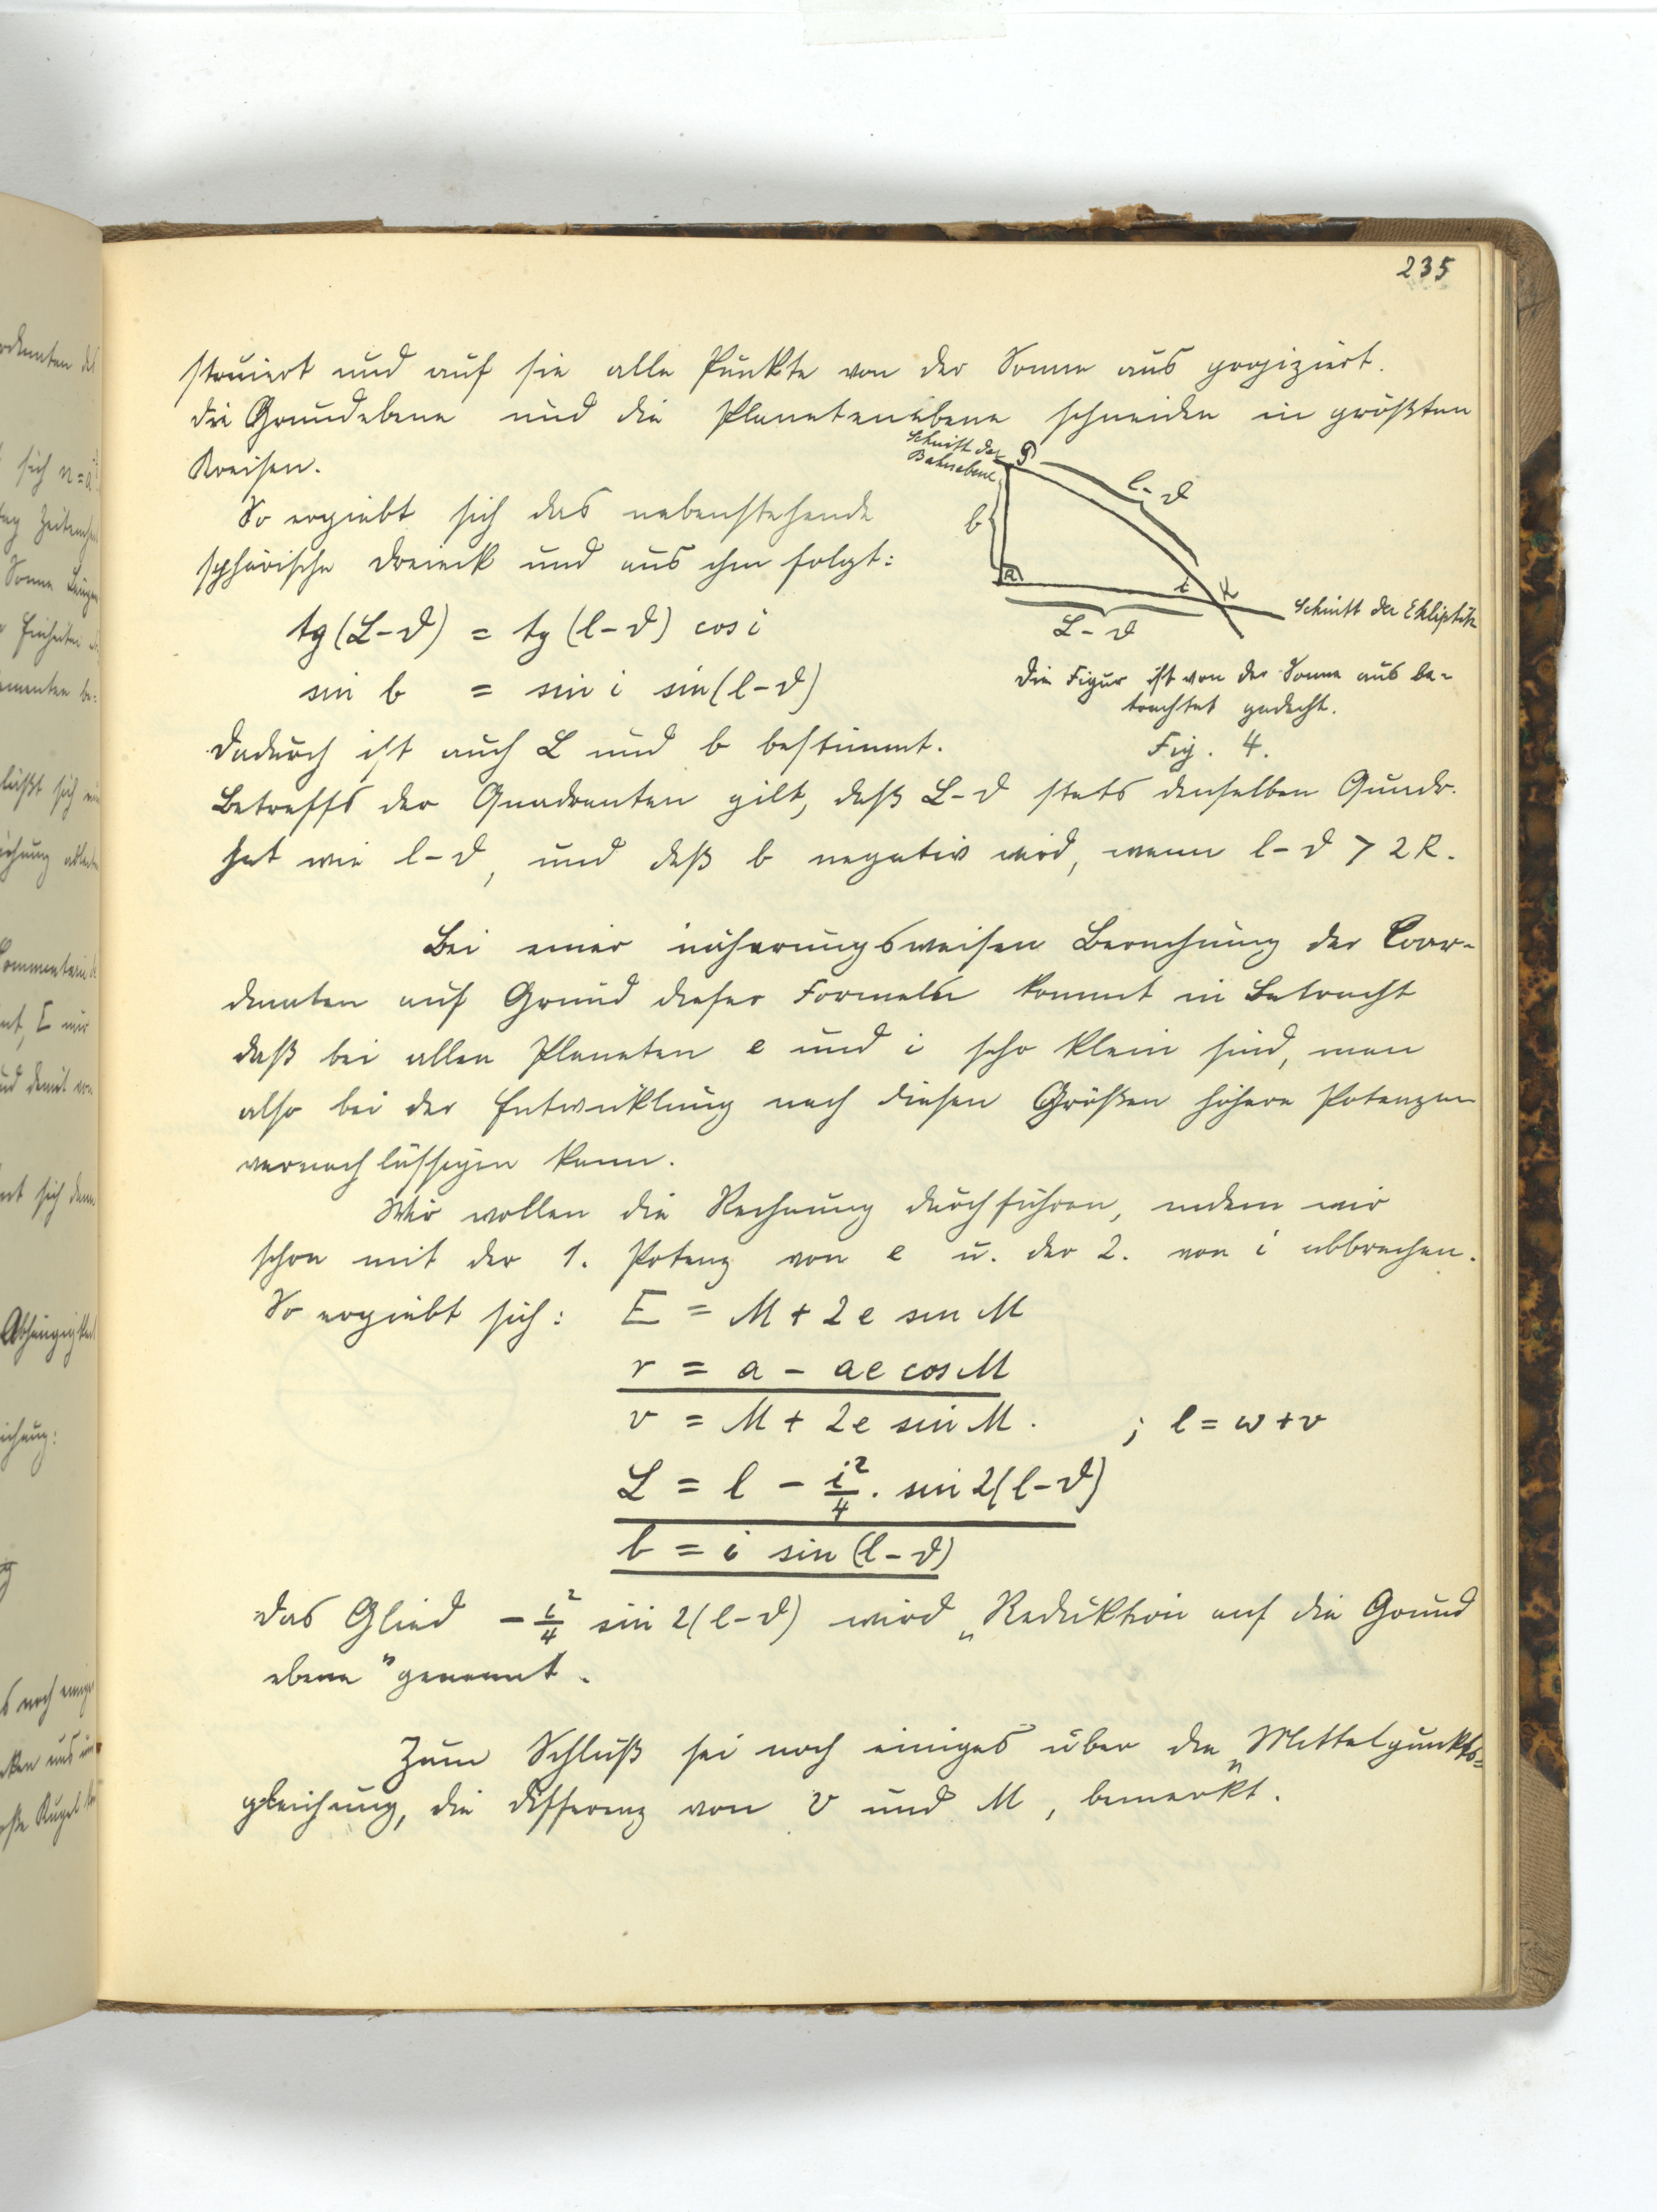 235
struiert und auf sie alle Punkte von der Sonne aus projiziert.
die Grundebene und die Planetenebene schneiden in größten
Kreisen.
Schnitt der
Bahnebene
P
l-ϑ
b
R
i
K
Schnitt der Ekliptik
L-ϑ
So ergiebt sich das nebenstehende
sphärische Dreieck und aus ihm folgt:
tg (L-ϑ) = tg (l-ϑ) cos i
sin b = sin i sin (l-ϑ)
Die Figur ist von der Sonne aus be-
trachtet gedacht.
Fig. 4.
Dadurch ist auch L und b bestimmt.
Betreffs der Quadranten gilt, daß L-ϑ stets denselben Quadr.
hat wie l-ϑ, und daß b negativ wird, wenn l-ϑ > 2R.
Bei einer näherungsweisen Berechnung der Coor-
dinaten auf Grund dieser Formeln kommt in Betracht
daß bei allen Planeten e und i sehr klein sind, man
also bei der Entwicklung nach diesen Größen höhere Potenzen
vernachlässigen kann.
Wir wollen die Rechnung durchführen, indem wir
schon mit der 1. Potenz von e u. der 2. von i abbrechen.
So ergiebt sich: E = M + 2e sin M
r = a - ae cos M
v = M + 2e sin M. ; l = w + v
L = l - i²/4 . sin 2(l-ϑ)
b = i sin (l-ϑ)
Das Glied - i²/4 sin 2(l-ϑ) wird „Reduktion auf die Grund
ebene" genannt.
Zum Schluß sei noch einiges über die „Mittelpunkts-
gleichung, die Differenz von v und M, bemerkt.